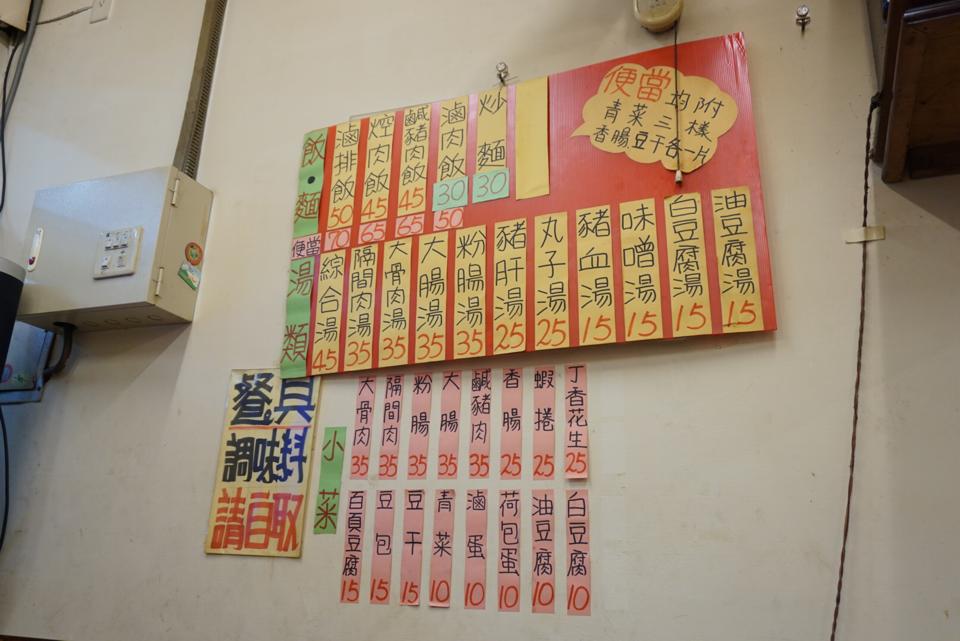 飯•麵
滷排飯50
焢肉飯45
鹹豬肉飯45
滷肉飯30
炒麵30
便當
70
65
65
50
便當均附
青菜三樣
香腸豆干各一片
湯類
綜合湯45
隔間肉湯35
大骨肉湯35
大腸湯35
粉腸湯35
豬肝湯25
丸子湯25
豬血湯15
味噌湯15
白豆腐湯15
油豆腐湯15
小菜
大骨肉35
隔間肉35
粉腸35
大腸35
鹹豬肉35
香腸25
蝦捲25
丁香花生25
百頁豆腐15
豆包15
豆干15
青菜10
滷蛋10
荷包蛋10
油豆腐10
白豆腐10
餐具
調味料
請自取